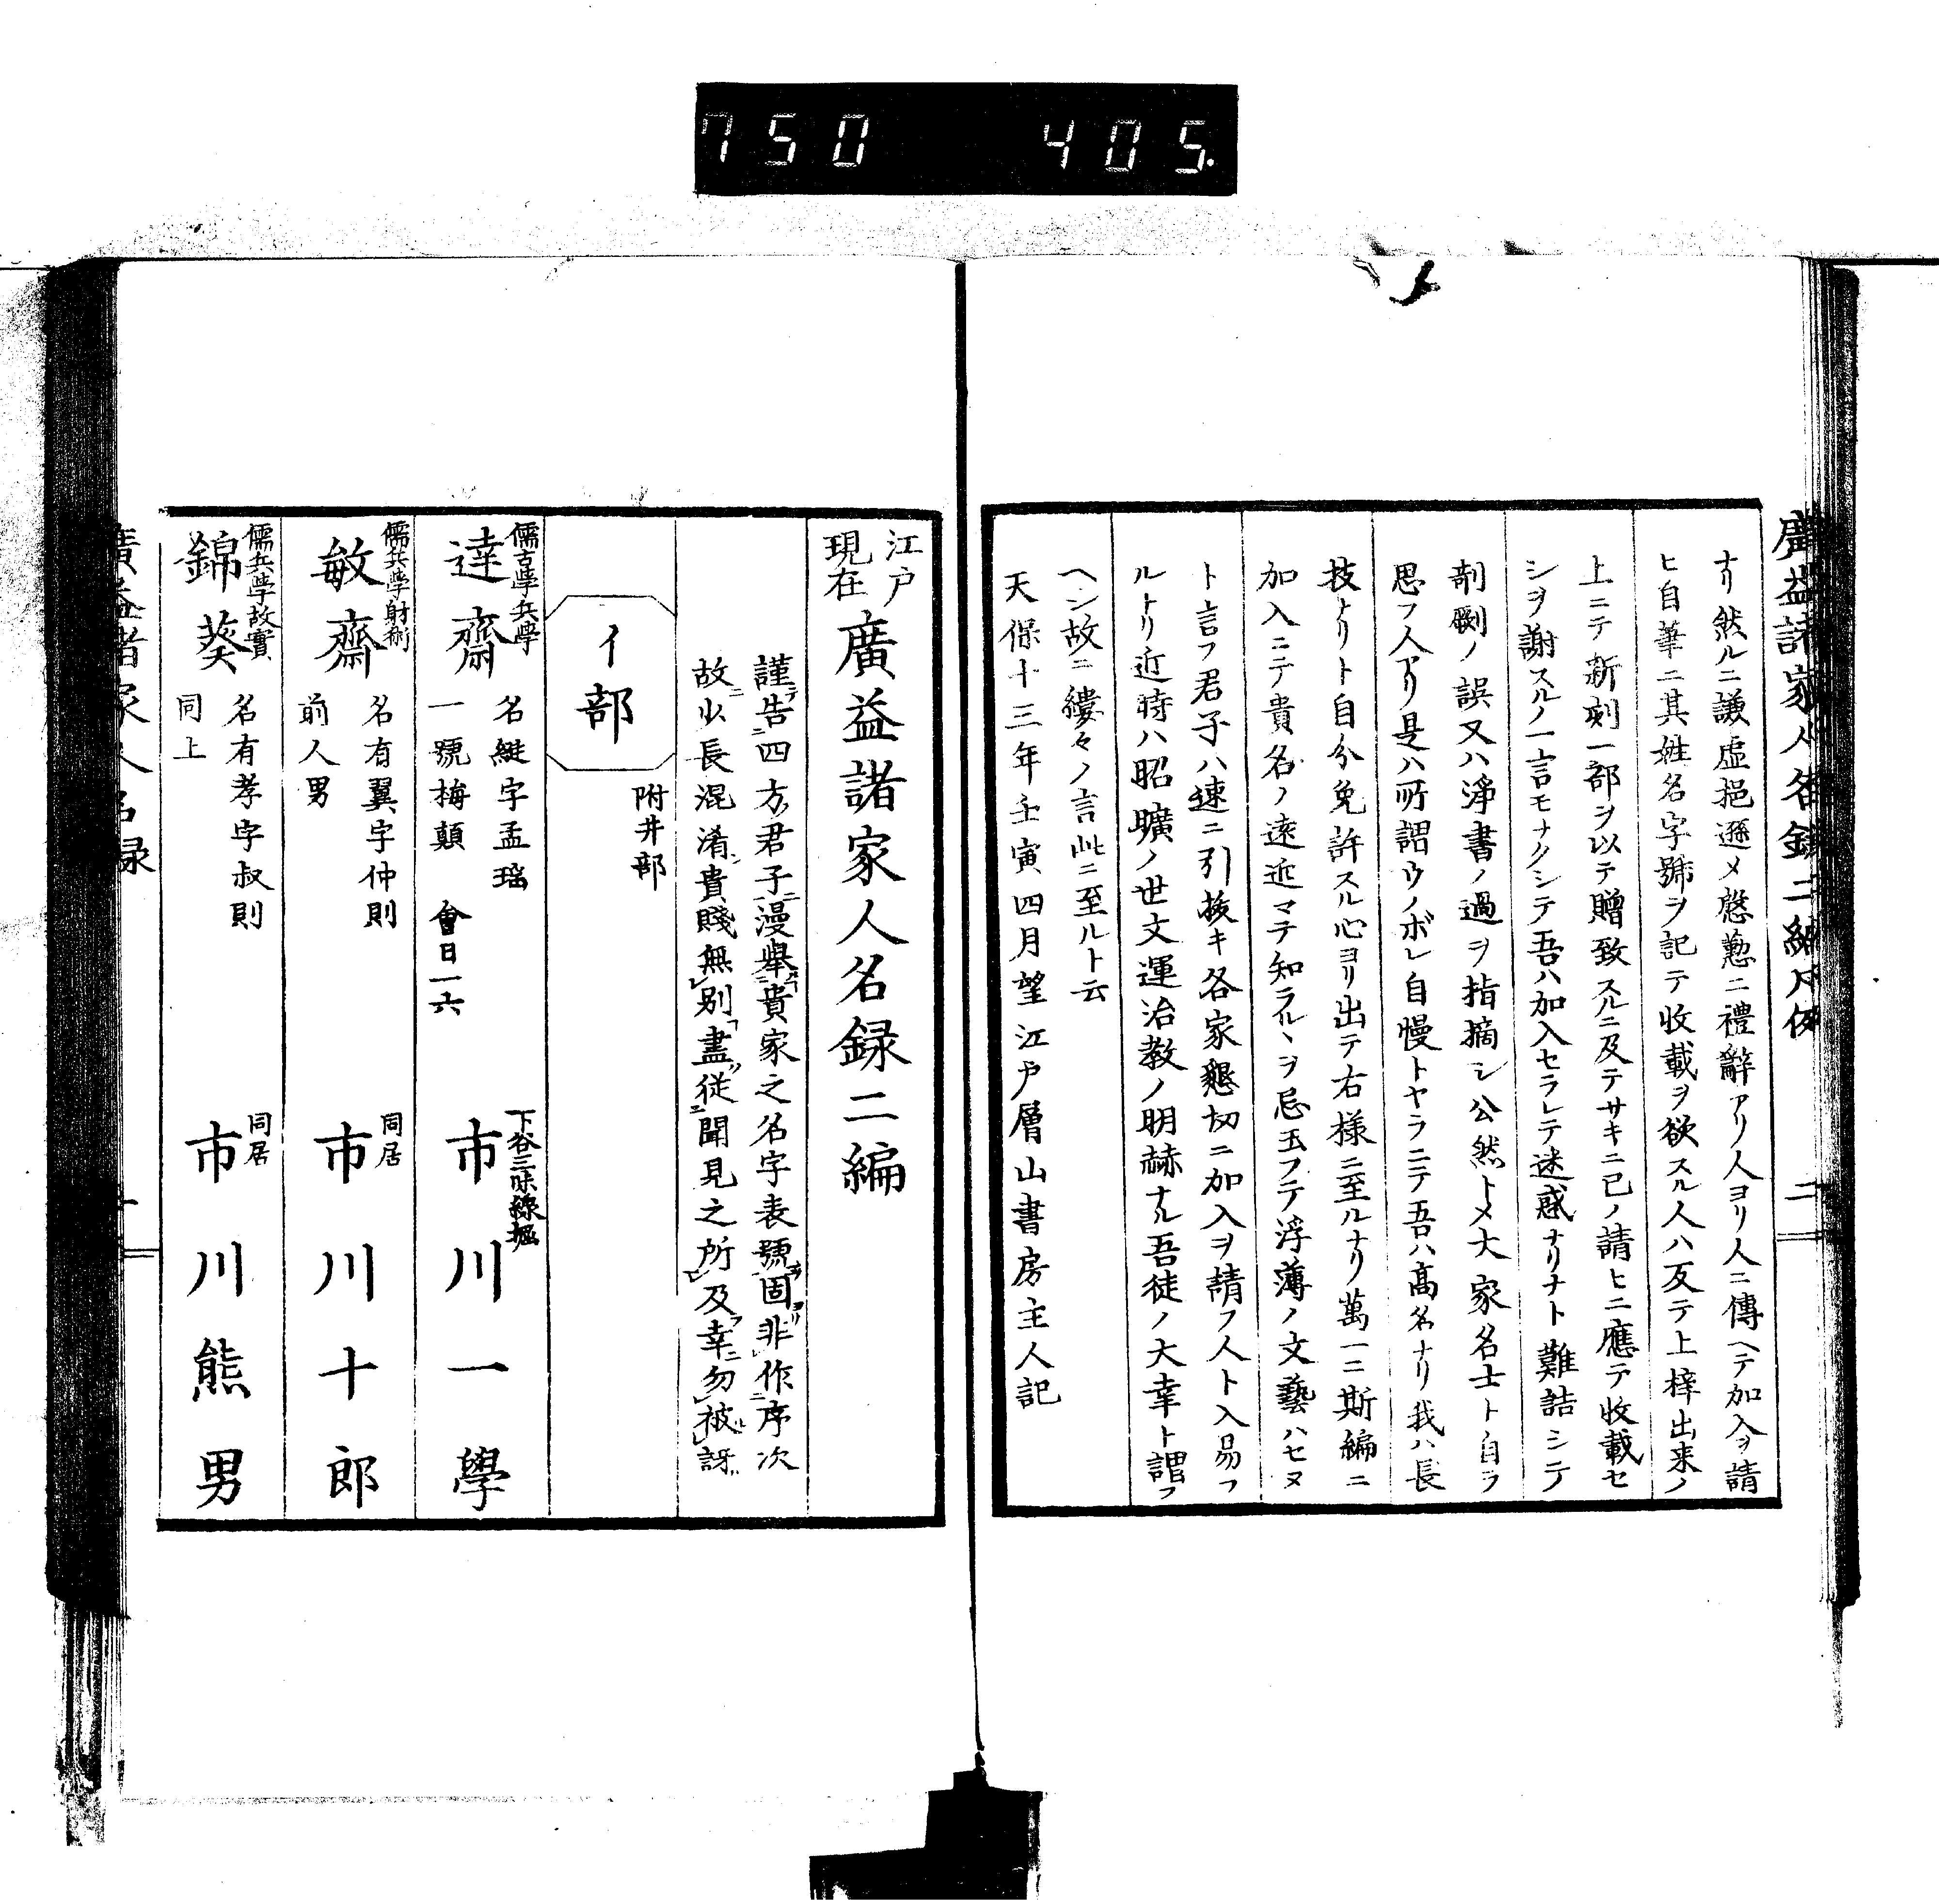 750 405.
廣益諸家人名録二編凡例 二
ナリ然ルニ謙虚挹遜〆慇懃ニ禮辭アリ人ヨリ人ニ傳ヘテ加入ヲ請
ヒ自筆ニ其姓名字號ヲ記テ收載ヲ欲スル人ハ反テ上梓出来ノ
上ニテ新刻一部ヲ以テ贈致スルニ及テサキニ己ノ請ヒニ應テ收載セ
シヲ謝スルノ一言モナクシテ吾ハ加入セラレテ迷惑ナリナト難詰シテ
剞劂ノ誤又ハ淨書ノ過ヲ指摘シ公然ト〆大家名士ト自ラ
思フ人アリ是ハ所謂ウノボレ自慢トヤラニテ吾ハ高名ナリ我ハ長
技ナリト自分免許スル心ヨリ出テ右様ニ至ルナリ萬一ニ斯編ニ
加入ニテ貴名ノ遠近マテ知ラルヽヲ忌玉フテ浮薄ノ文藝ハセヌ
ト言フ君子ハ速ニ引拔キ各家懇切ニ加入ヲ請フ人ト入易フ
ルトリ近時ハ昭曠ノ世文運治教ノ明赫ナル吾徒ノ大幸ト謂フ
ヘシ故ニ縷々ノ言此ニ至ルト云
天保十三年壬寅四月望江戸層山書房主人記
江戸現在廣益諸家人名録二編
謹告四方君子漫舉貴家之名字表號固非作序次
故少長混淆貴賤無別盡従聞見之所及幸勿被訝
イ部 附井部
儒古學兵學
達齋 名縦字孟瑶
一號梅顛 會日一六
下谷三味線堀
市川一學
儒兵學射術
敏齋 名有翼字仲則
前人男
同居
市川十郎
儒兵學故實
錦葵 名有孝字叔則
同上
同居
市川熊男
廣益諸家人名録